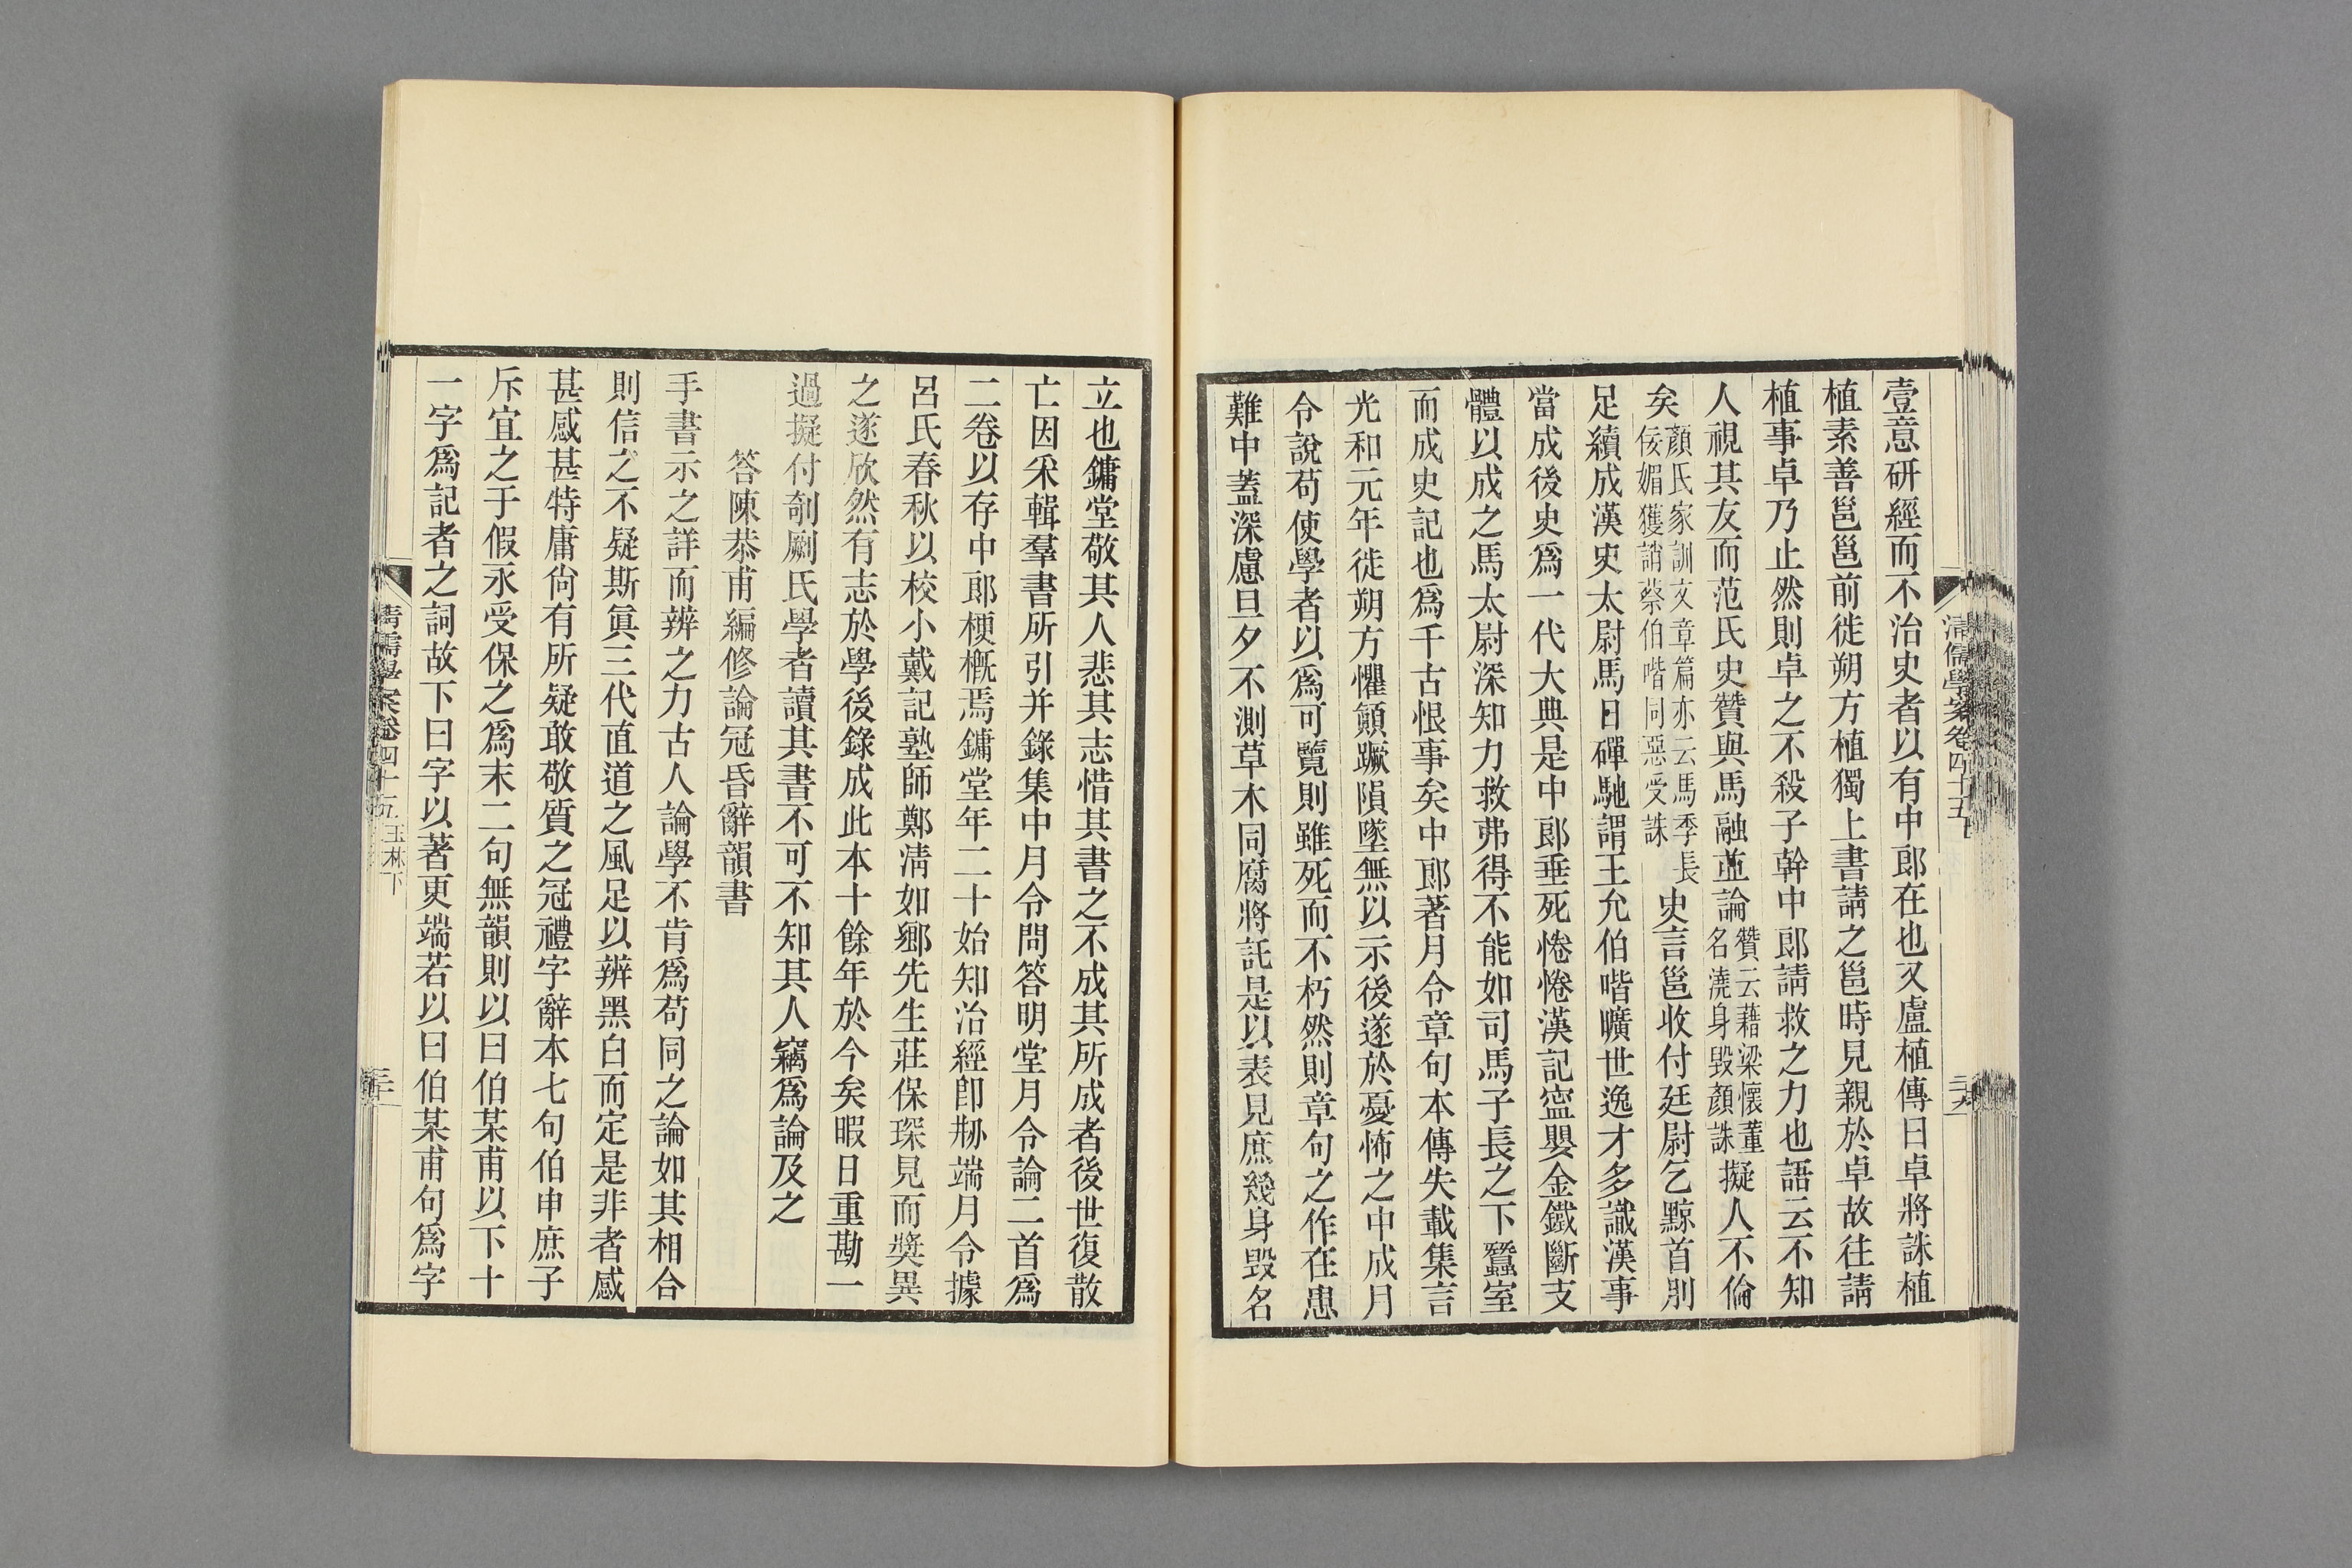 壹意研經而不治史者以有中郎在也又盧植傳曰卓將誅植
植素善邕邕前徙朔方植獨上書請之邕時見親於卓故往請
植事卓乃止然則卓之不殺子幹中郎請救之力也語云不知
人視其友而范氏史贊與馬融並論贊云藉梁懷董名澆身毀顏誅擬人不倫
矣顏氏家訓文章篇亦云馬季長佞媚獲誚蔡伯喈同惡受誅史言邕收付廷尉乞黥首刖
足續成漢史太尉馬日磾馳謂王允伯喈曠世逸才多識漢事
當成後史爲一代大典是中郎垂死惓惓漢記寍嬰金鐵斷支
體以成之馬太尉深知力救弗得不能如司馬子長之下蠶室
而成史記也爲千古恨事矣中郎著月令章句本傳失載集言
光和元年徙朔方懼顚蹶隕墜無以示後遂於憂怖之中成月
令說苟使學者以爲可覽則雖死而不朽然則章句之作在患
難中蓋深慮旦夕不測草木同腐將託是以表見庶幾身毀名
清儒學案卷四十五
立也鏞堂敬其人悲其志惜其書之不成其所成者後世復散
亡因采輯羣書所引并錄集中月令問答明堂月令論二首爲
二卷以存中郎梗槪焉鏞堂年二十始知治經卽刱端月令據
呂氏春秋以校小戴記塾師鄭淸如鄉先生莊保琛見而獎異
之遂欣然有志於學後錄成此本十餘年於今矣暇日重勘一
過擬付剞劂氏學者讀其書不可不知其人竊爲論及之
答陳恭甫編修論冠昏辭韻書
手書示之詳而辨之力古人論學不肯爲苟同之論如其相合
則信之不疑斯眞三代直道之風足以辨黑白而定是非者感
甚感甚特庸尙有所疑敢敬質之冠禮字辭本七句伯申庶子
斥宜之于假永受保之爲末二句無韻則以曰伯某甫以下十
一字爲記者之詞故下曰字以著更端若以曰伯某甫句爲字
清儒學案卷四十五 玉林下